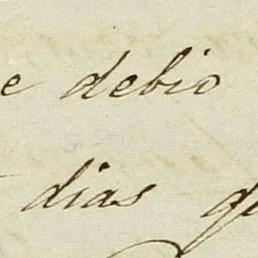 e debio
dias